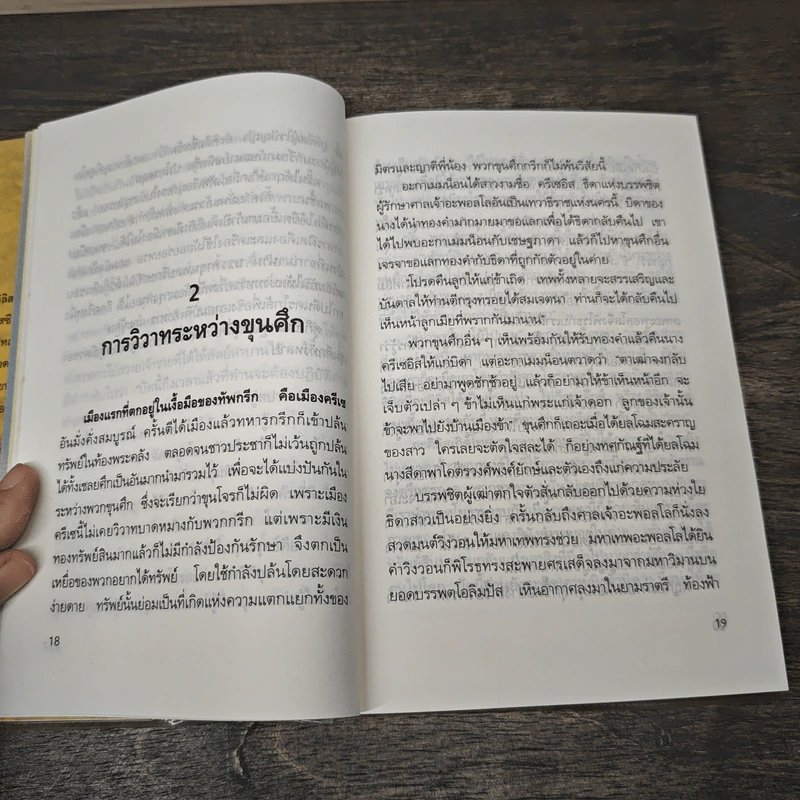 2
การวิวาทระหว่างขุนศึก
เมืองแรกที่ตกอยู่ในเงื้อมมือของทัพกรีก คือเมืองครีเซ
อันมั่งคั่งสมบูรณ์ ครั้นตีได้เมืองแล้วทหารกรีกก็เข้าปล้น
ทรัพย์ในท้องพระคลัง ตลอดจนชาวประชาก็ไม่เว้นถูกปล้น
ได้ทั้งเชลยศึกเป็นอันมากนำมารวมไว้ เพื่อจะได้แบ่งปันกันใน
ระหว่างพวกขุนศึก ซึ่งจะเรียกว่าขุนโจรก็ไม่ผิด เพราะเมือง
ครีเซนี้ไม่เคยวิวาทบาดหมางกับพวกกรีก แต่เพราะมีเงิน
ทองทรัพย์สินมากแล้วก็ไม่มีกำลังป้องกันรักษา จึงตกเป็น
เหยื่อของพวกอยากได้ทรัพย์ โดยใช้กำลังปล้นโดยสะดวก
ง่ายดาย ทรัพย์นั้นย่อมเป็นที่เกิดแห่งความแตกแยกทั้งของ
18
มิตรและญาติพี่น้อง พวกขุนศึกกรีกก็ไม่พ้นวิสัยนี้
อะกาเมมน็อนได้สาวงามชื่อ ครีเซอิส ธิดาแห่งบรรพชิต
ผู้รักษาศาลเจ้าอะพอลโลอันเป็นเทวาธิราชแห่งนครนี้ บิดาของ
นางได้นำทองคำมากมายมาขอแลกเพื่อได้ธิดากลับคืนไป เขา
ได้ไปพบอะกาเมมน็อนกับเชษฐภาดา แล้วก็ไปหาขุนศึกอื่น
เจรจาขอแลกทองคำกับธิดาที่ถูกกักตัวอยู่ในค่าย
"โปรดคืนลูกให้แก่ข้าเถิด เทพทั้งหลายจะสรรเสริญและ
บันดาลให้ท่านตีกรุงทรอยได้สมเจตนา ท่านก็จะได้กลับคืนไป
เห็นหน้าลูกเมียที่พรากกันมานาน"
พวกขุนศึกอื่น ๆ เห็นพร้อมกันให้รับทองคำแล้วคืนนาง
ครีเซอิสให้แก่บิดา แต่อะกาเมมน็อนตวาดว่า "ตาเฒ่าจงกลับ
ไปเสีย อย่ามาพูดซักช้าอยู่ แล้วก็อย่ามาให้ข้าเห็นหน้าอีก จะ
เจ็บตัวเปล่า ๆ ข้าไม่เห็นแก่พระแก่เจ้าดอก ลูกของเจ้านั้น
ข้าจะพาไปยังบ้านเมืองข้า" ขุนศึกก็เถอะเมื่อได้ยลโฉมสะคราญ
ของสาว ใครเลยจะตัดใจสละได้ ก็อย่างทศกัณฐ์ที่ได้ยลโฉม
นางสีดาพาโคตรวงศ์พงศ์ยักษ์และตัวเองถึงแก่ความประลัย
บรรพชิตผู้เฒ่าตกใจตัวสั่นกลับออกไปด้วยความห่วงใย
ธิดาสาวเป็นอย่างยิ่ง ครั้นกลับถึงศาลเจ้าอะพอลโลก็นั่งลง
สวดมนต์วิงวอนให้มหาเทพทรงช่วย มหาเทพอะพอลโลได้ยิน
คำวิงวอนก็พิโรธทรงสะพายศรเสด็จลงมาจากมหาวิมานบน
ยอดบรรพตโอลิมปัส เหินอากาศลงมาในยามราตรี ท้องฟ้า
19